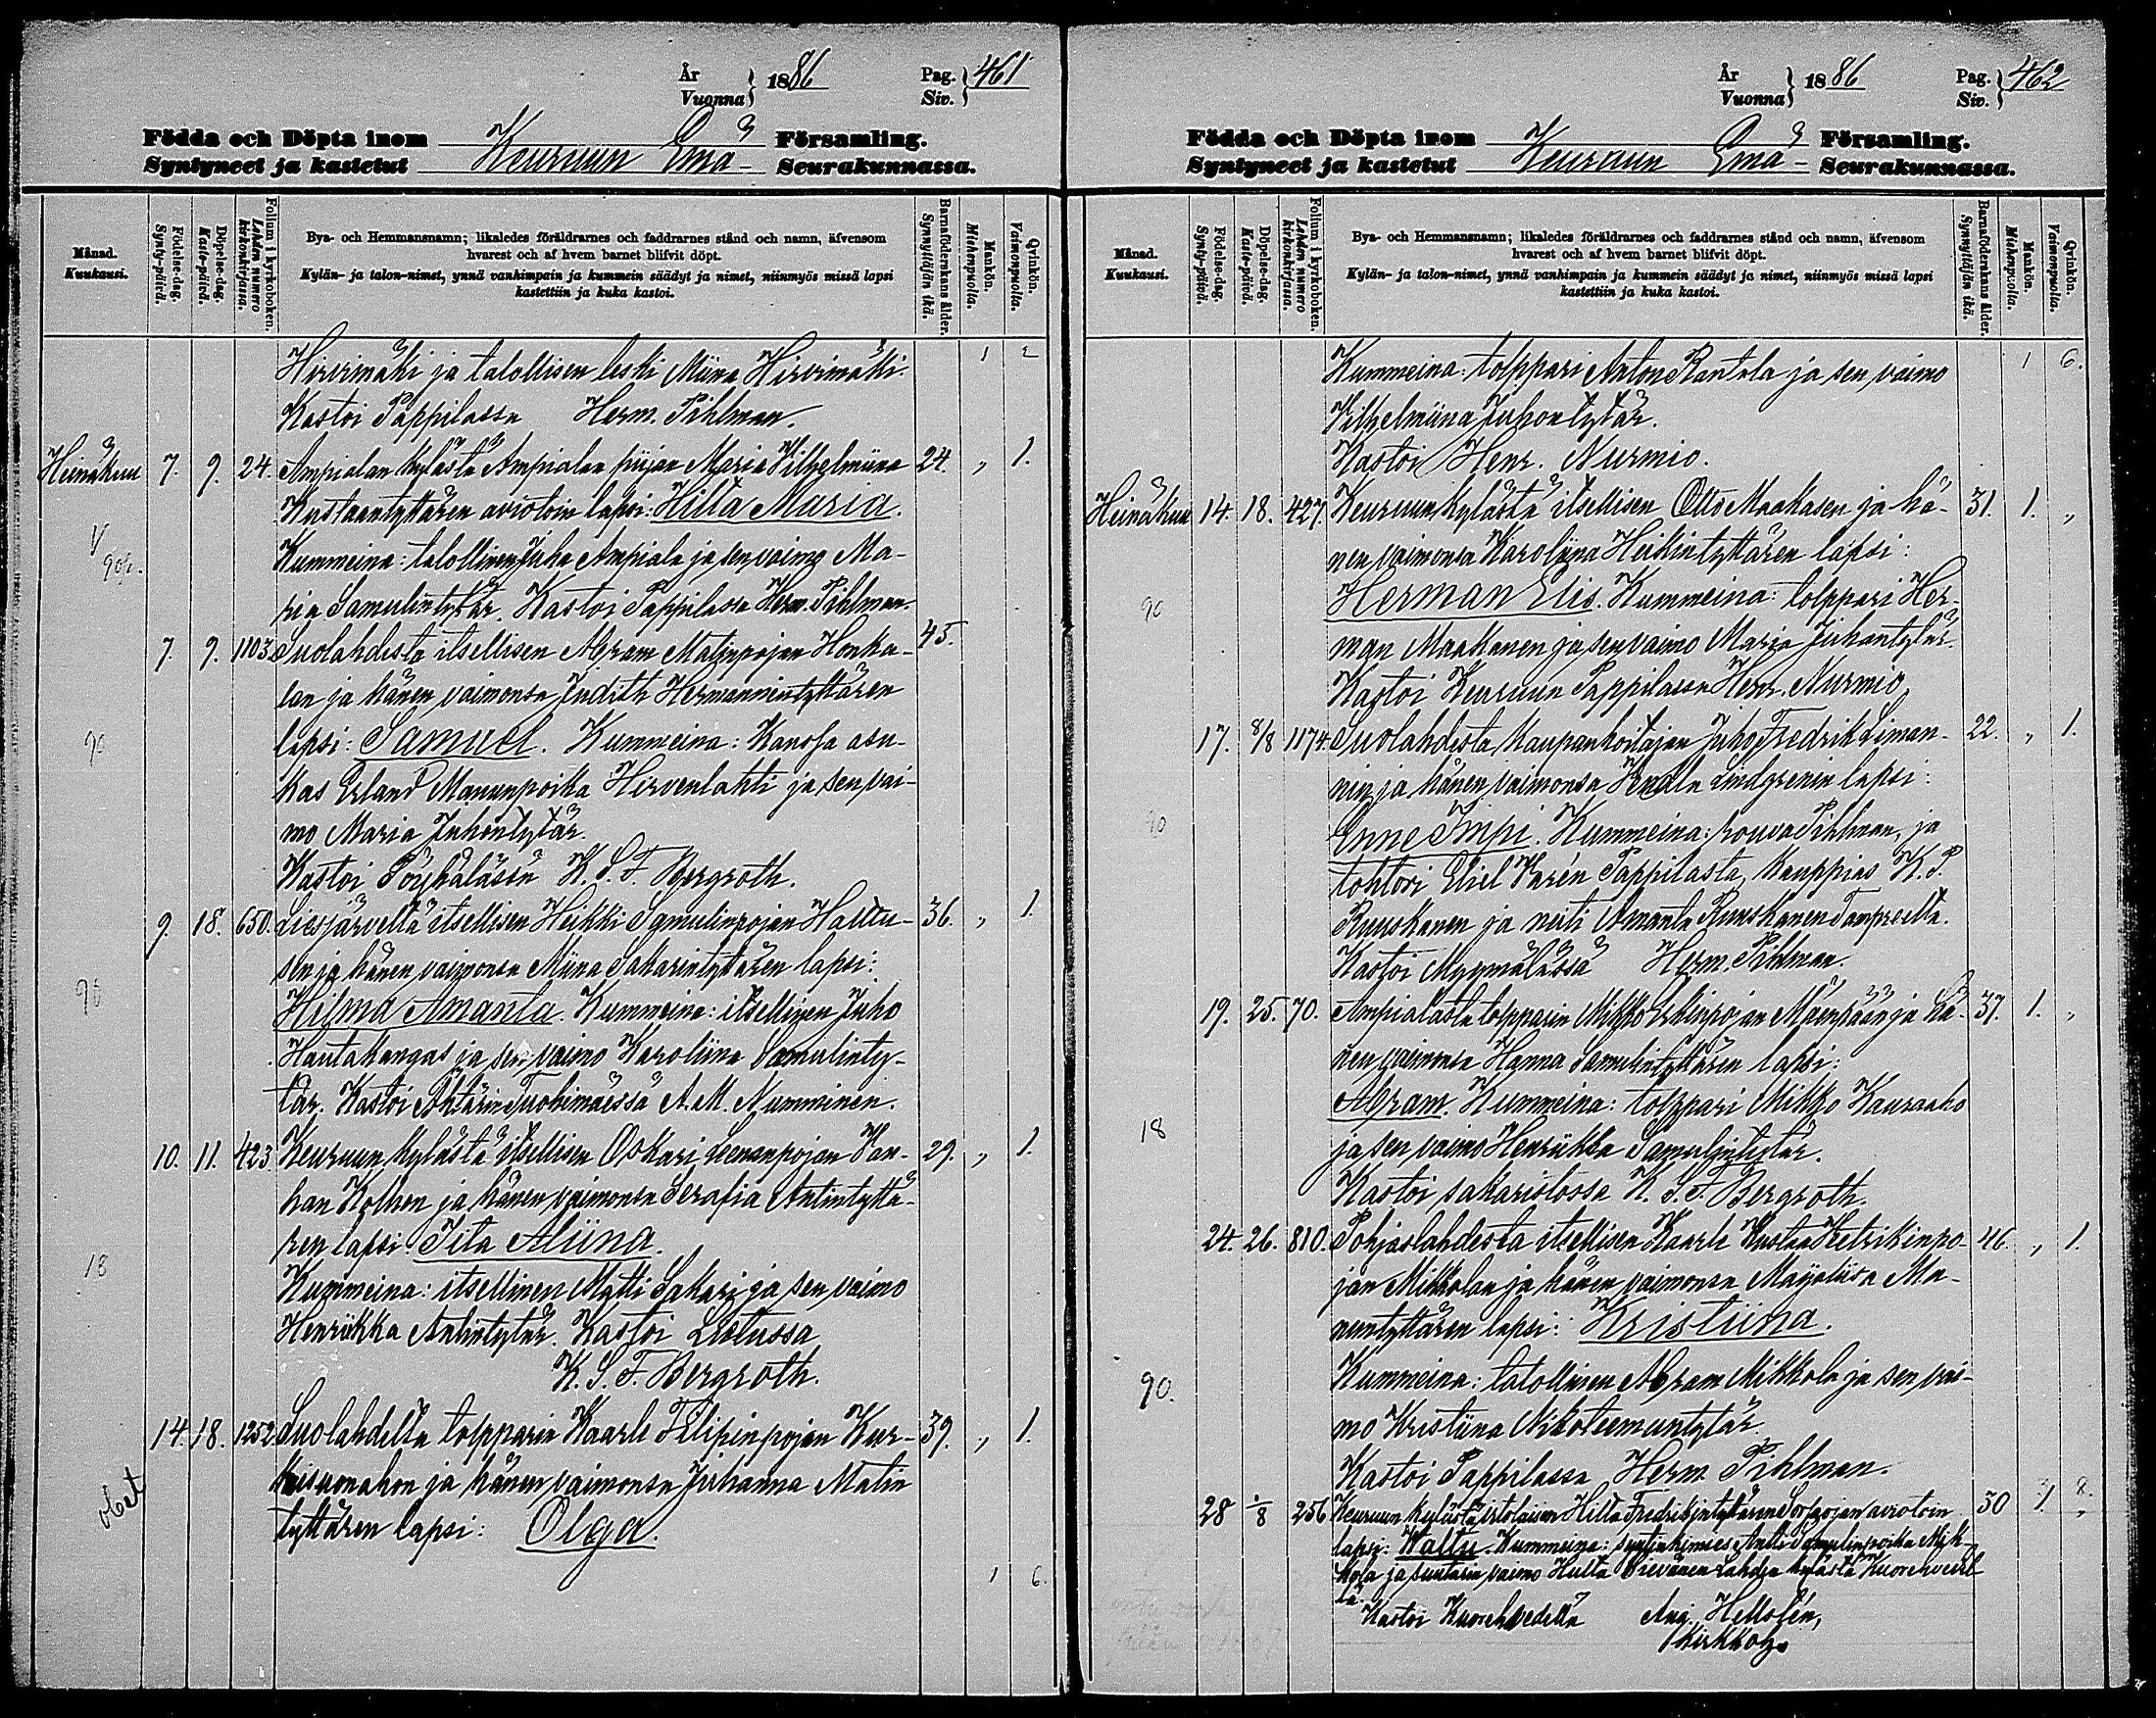 År
Vuonna } 1886 Pag.
Siv. } 461
Födda och Döpta inom
Syntyneet ja kastetut Keuruun Emä- Församling.
Seurakunnassa.
Månad.
Kuukausi.
Födelse-dag.
Synty-päivä.
Döpelse-dag.
Kaste-päivä.
Folium i kyrkoboken.
Lehden numero
kirkonkirjassa.
Bya- och Hemmansnamn; likaledes föräldrarnes och faddrarnes stånd och namn, äfvensom
hvarest och af hvem barnet blifvit döpt.
Kylän- ja talon-nimet, ynnä vanhimpain ja kummein säädyt ja nimet, niinmyös missä lapsi
kastettiin ja kuka kastoi.
Barnaföderskans ålder.
Synnyttäjän ikä.
Mankön.
Miehenpuolia.
Qvinkön.
Vaimonpuolia.
Hirvimäki ja talollisen leski Miina Hirvimäki. 1 2
Kastoi Pappilassa Herm. Pihlman.
Heinäkuu 7. 9. 24. Ampialan kylästä Ampialan piijan Maria Vilhelmiina 24. „ 1.
Kustaantyttären aviotoin lapsi: Hilta Maria.
Kummeina: talollinen Juha Ampiala ja sen vaimo Ma-
ria Samulintytär. Kastoi Pappilassa Herm. Pihlman.
7. 9. 1103. Suolahdesta itsellisen Abram Matinpojan Honka- 45.
lan ja hänen vaimonsa Judith Hermannintyttären
90 lapsi: Samuel. Kummeina: Kansfa asu-
kas Erland Manunpoika Hirvenlahti ja sen vai-
mo Maria Juhontytär.
Kastoi Pöyhölässä K. S. F. Bergroth.
9. 18. 650. Liesjärveltä itsellisen Heikki Samulinpojan Hautu- 36. „ 1.
sen ja hänen vaimonsa Miina Sakarintyttären lapsi:
90 Hilma Amanta. Kummeina: itsellinen Juho
Hautakangas ja sen vaimo Karoliina Samulinty-
tär. Kastoi Ähtärin Tuohimäessä A. M. Numminen.
10. 11. 423 Keuruun kylästä itsellisen Oskari Leenanpojan Van- 29. „ 1.
han Kolhen ja hänen vaimonsa Serafia Antintyttä-
ren lapsi: Tita Aliina.
18 Kummeina: itsellinen Matti Sakari ja sen vaimo
Henriikka Antintytär. Kastoi
K. S. F. Bergroth.
14. 18. 1252 Suolahdelta torpparin Kaarle Filipinpojan Kur- 39. „ 1.
kisuonahon ja hänen vaimonsa Juhanna Matin
obet tyttären lapsi: Olga.
1 6.
År
Vuonna } 1886 Pag.
Siv. } 462
Födda och Döpta inom
Syntyneet ja kastetut Keuruun Emä- Församling.
Seurakunnassa.
Månad.
Kuukausi.
Födelse-dag.
Synty-päivä.
Döpelse-dag.
Kaste-päivä.
Folium i kyrkoboken.
Lehden numero
kirkonkirjassa.
Bya- och Hemmansnamn; likaledes föräldrarnes och faddrarnes stånd och namn, äfvensom
hvarest och af hvem barnet blifvit döpt.
Kylän- ja talon-nimet, ynnä vanhimpain ja kummein säädyt ja nimet, niinmyös missä lapsi
kastettiin ja kuka kastoi.
Barnaföderskans ålder.
Synnyttäjän ikä.
Mankön.
Miehenpuolia.
Qvinkön.
Vaimonpuolia.
Kummeina: torppari Anton Rantala ja sen vaimo 1 6.
Vilhelmiina Juhontytär.
Kastoi Henr. Nurmio.
Heinäkuu 14. 18. 427. Keuruun kylästä itsellisen Otto Maakasen ja hä- 31. 1. „
nen vaimonsa Karoliina Heikintyttären lapsi:
90 Herman Elis. Kummeina: torppari Her-
man Maakanen ja sen vaimo Maria Juhantytär.
Kastoi Keuruun Pappilassa Henr. Nurmio.
17. 8/8 1174. Suolahdesta, kaupanhoitajan Juho Fredrik Liman- 22. „ 1.
nin ja hänen vaimonsa Lindgrenin lapsi:
90 Enne Impi. Kummeina: rouva Pihlman, ja
tohtori Eliel Varén Pappilasta, kauppias K. P.
Ruuskanen ja neiti Amanta Ruuskanen Tampreelta.
Kastoi Myymälässä Herm. Pihlman.
19. 25. 70. Ampialasta torpparin Mikko Erkinpojan Mäenpään ja hä- 37. 1. „
nen vaimonsa Hanna Samulintyttären lapsi:
18 Abram. Kummeina: torppari Mikko Kauraaho
ja sen vaimo Henriikka Samulintytär.
Kastoi sakaristossa K. S. F. Bergroth.
24. 26. 810. Pohjaslahdesta itsellisen Kaarle Kustaa Fretrikinpo- 46. „ 1.
jan Mikkolan ja hänen vaimonsa Majaliisa Ma-
nuntyttären lapsi: Kristiina.
90. Kummeina: talollinen Abram Mikkola ja sen vai-
mo Kristiina Nikoteemuntytär.
Kastoi Pappilassa Herm. Pihlman.
28 1/8 256 Keuruun kylästä irtolaisen Hilta Fredrikintyttären aviotoin 30 1. „
lapsi: Waltu. Kummeina: Antti Samulinpoika Mik-
kola ja suutarin vaimo Hulta Lahden kylästä Kuorehveel-
tä.
Kastoi Kuorehvedellä Aug. Hellsten,
Kirkkoh.